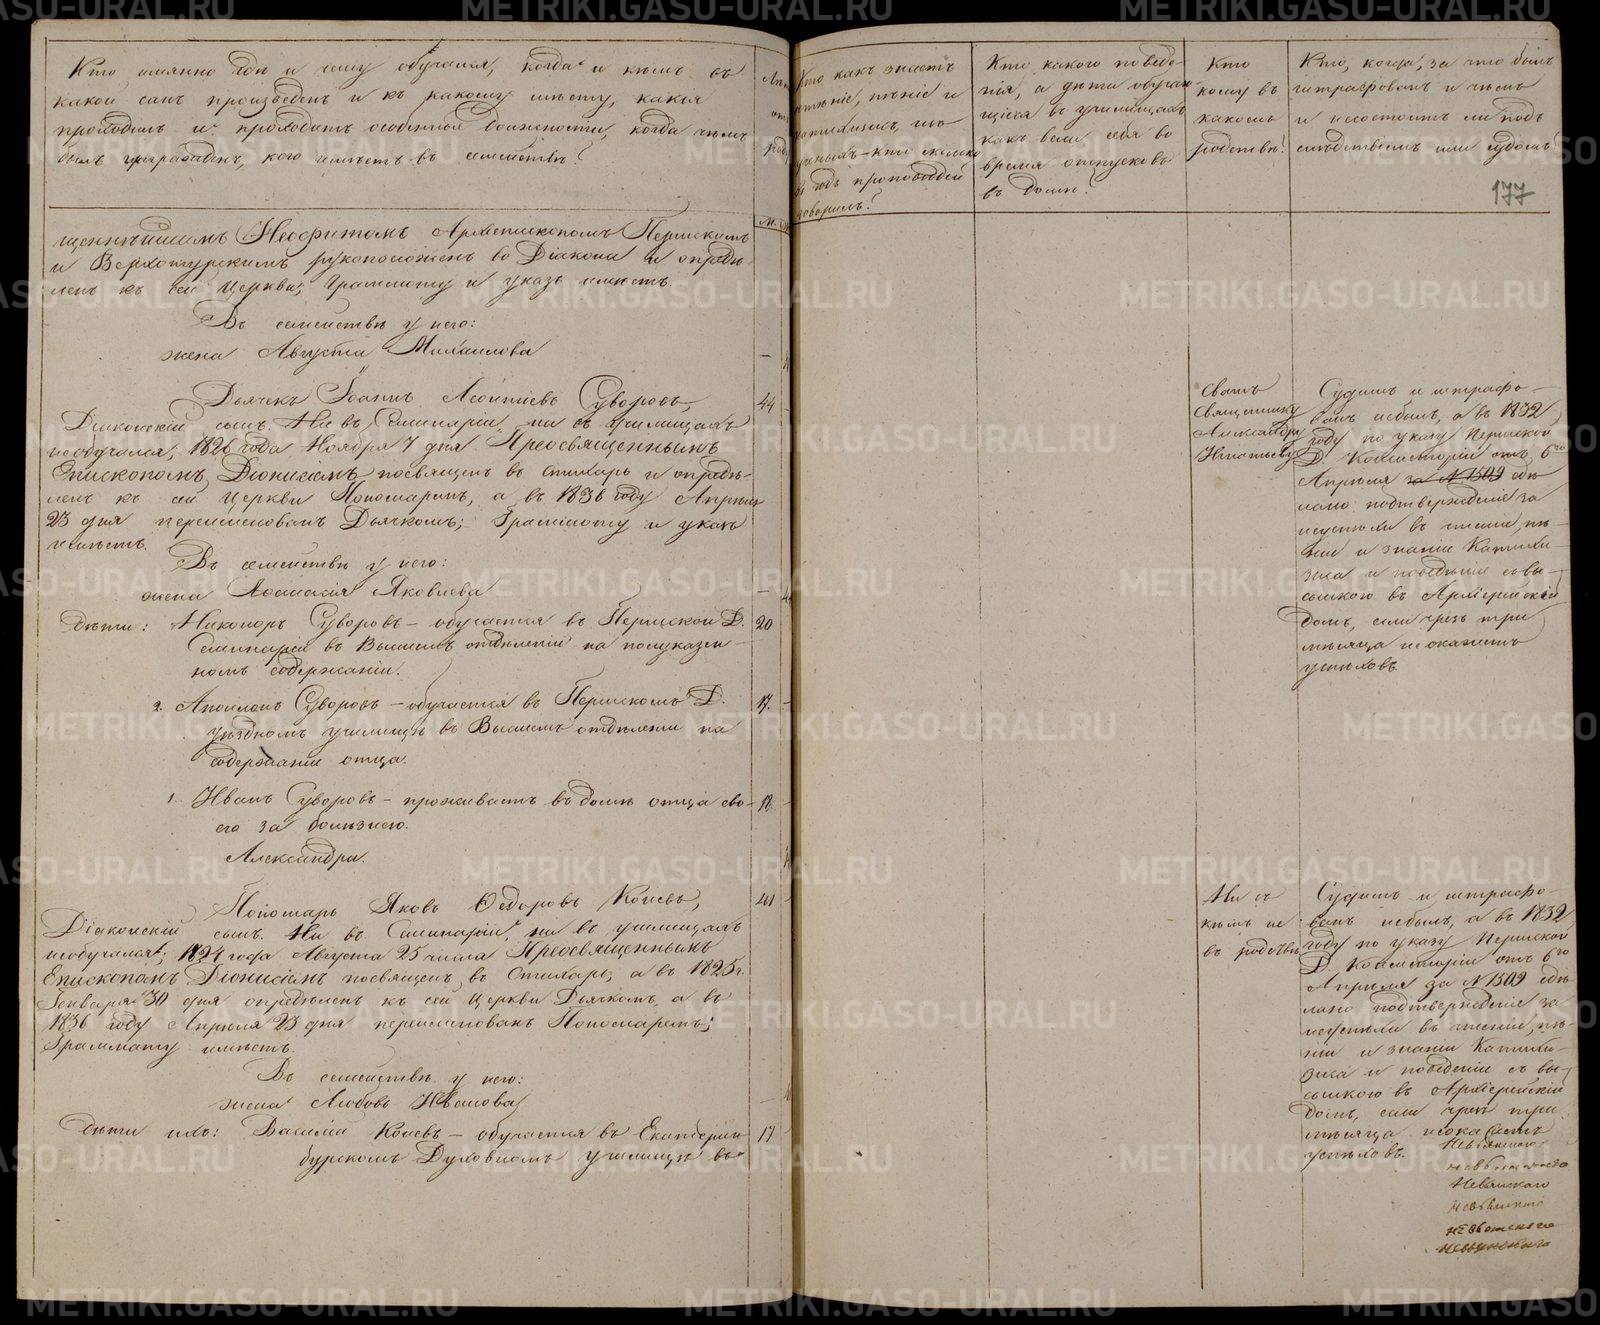 Кто имянно гдѣ и чему обучался, когда и кѣмъ въ
какой санъ произведенъ и къ какому мѣсту, какія
проходилъ и проходитъ особенныя должности, когда чѣмъ
былъ награжденъ, кого имѣетъ въ семействѣ?
щеннѣйшимъ Неофитомъ Архіепископомъ Пермскимъ
и Верхотурскимъ рукоположенъ во Діакона и опредѣ-
ленъ къ сей Церкви; Граммоту и указъ имѣетъ.
Въ семействѣ у него:
жена Августа Михаилова
Дьячекъ Іоаннъ Леонтіевъ Суворовъ, 44
Діаконскій сынъ. Ни въ Семинаріи, ни въ училищахъ
необучался; 1826 года Ноября 7 дня Преосвященнымъ
Епископомъ Діонисіемъ посвященъ въ стихарь и опредѣ-
ленъ къ сей Церкви Пономаремъ, а въ 1836 году Апрѣля
23 дня переименованъ Дьячкомъ; Граммоту и указъ
имѣетъ.
Въ семействѣ у него:
жена Яковлева
дѣти: Никаноръ Суворовъ – обучается въ Пермской Д. 20
Семинаріи въ Высшемъ отдѣленіи на полуказен-
номъ содержаніи.
2. Аполлонъ Суворовъ – обучается въ Пермскомъ Д. 17.
уѣздномъ училищѣ въ Высшемъ отдѣленіи на
содержаніи отца.
1. Иванъ Суворовъ – проживаетъ въ домѣ отца сво- 18
его за болѣзнею.
Александра.
Пономарь Яковъ Ѳедоровъ Коневъ, 41
Діаконскій сынъ. Ни въ Семинаріи, ни въ училищахъ
необучался; 1824 года Августа 25 числа Преосвященнымъ
Епископомъ Діонисіемъ посвященъ въ Стихарь, а въ 1825 г.
Генваря 30 дня опредѣленъ къ сей Церкви Дьячкомъ, а въ
1836 году Апрѣля 23 дня переименованъ Пономаремъ;
Граммату имѣетъ.
Въ семействѣ у него:
жена Любовь Иванова
дѣти ихъ: Василій Коневъ – обучается въ Екатерин- 17
бурскомъ Духовномъ училищѣ въ
Кто какъ знаетъ
чтеніе, пѣніе и
катихизисъ, изъ
ученыхъ – кто сколько
въ годъ проповѣдей
говорилъ?
Кто какого поведе-
нія, а дѣти обучаю-
щіеся въ училищахъ
какъ вели себя во
время отпусковъ
въ домы?
Кто
кому въ
какомъ
родствѣ?
Кто, когда, за что былъ
штрафованъ и чѣмъ
и несостоитъ ли подъ
слѣдствіемъ или судомъ?
177
Сватъ
Священнику
Александру
Игнатьеву
Судимъ и штрафо-
ванъ небылъ, а въ 1832
году по указу Пермской
Д. Консисторіи отъ 6го
Апрѣля за №1509 сдѣ-
лано подтвержденіе за
неуспѣхи въ чтеніи, пѣ-
ніи и знаніи Катихи-
зиса и поведеніи съ вы-
сылкою въ Архіерейскій
Домъ, если чрезъ три
мѣсяца неокажетъ
успѣховъ.
Ни съ
кѣмъ не
въ родствѣ
Судимъ и штрафо-
ванъ небылъ, а въ 1832
году по указу Пермской
Д. Консисторіи отъ 6го
Апрѣля за №1509 сдѣ-
лано подтвержденіе за
неуспѣхи въ чтеніи, пѣ-
ніи и знаніи Катихи-
зиса и поведеніи съ вы-
сылкою въ Архіерейскій
Домъ, если чрезъ три
мѣсяца неокажетъ
успѣховъ.
Невьянскаго
Невьянскаго
METRIKI.GASO-URAL.RU